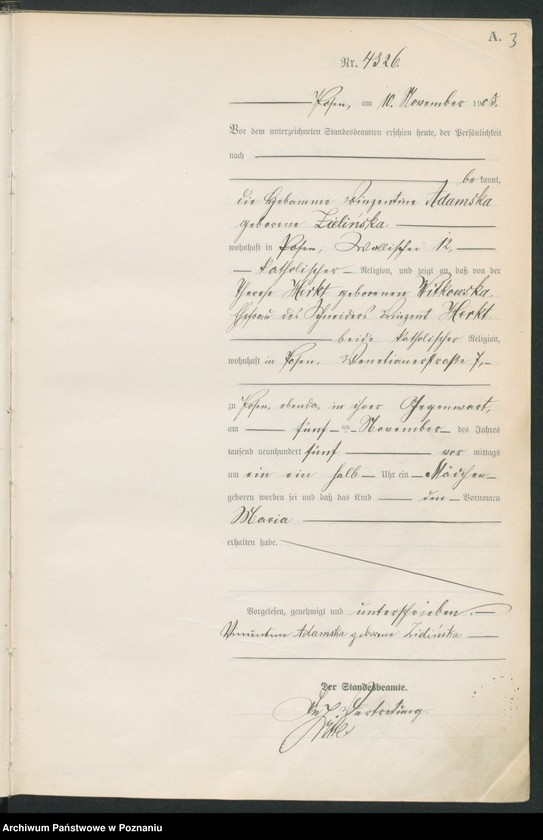 A. 3
Nr. 4326.
Posen, am 10. November 1905.
Vor dem unterzeichneten Standesbeamten erschien heute, der Persönlichkeit
nach
be kannt,
die Hebamme Vinzentine Adamska
geborene Zielińska.
wohnhaft in Posen, Wallischei 12,
katholischer Religion, und zeigte an, daß von der
Therese Herkt geborenen Witkowska,
Ehefrau des Schneiders Vinzent Herkt
beide katholischer Religion,
wohnhaft in Posen, Venetianerstraße 7,
zu Posen, ebenda, in ihrer Gegenwart,
am fünf ten November des Jahres
tausend neunhundert fünf vor mittags
um ein ein halb Uhr ein Mädchen
geboren worden sei und daß das Kind den Vornamen
Maria
erhalten habe.
Vorgelesen, genehmigt und unterschrieben.
Vinzentine Adamska geborene Zielińska
Der Standesbeamte.
In Vertretung.
Archiwum Państwowe w Poznaniu